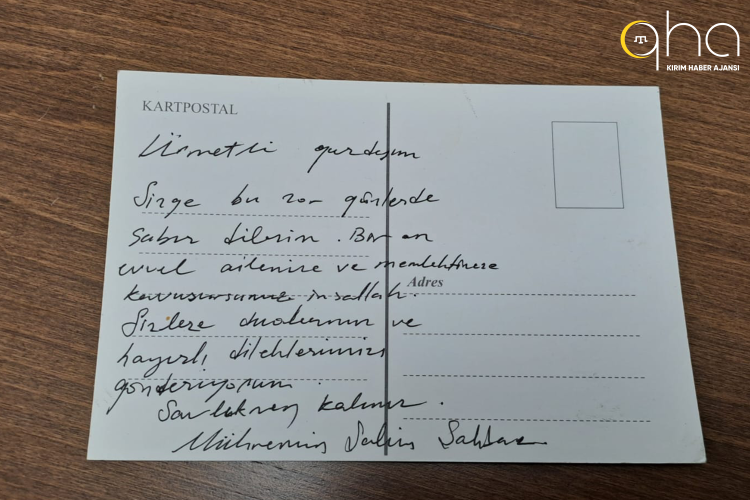 qha
KIRIM HABER AJANSI
KARTPOSTAL
Ürmetli qurdaşım
Sizge bu zor günlerde
sabır dilerim. Bir an
evvel ailenize ve memleketinize
kavuşursunuz inşallah.
Adres
Sizlere dualarımızı ve
hayırlı dileklerimizi
gönderiyorum
Savlıknen kalınız.